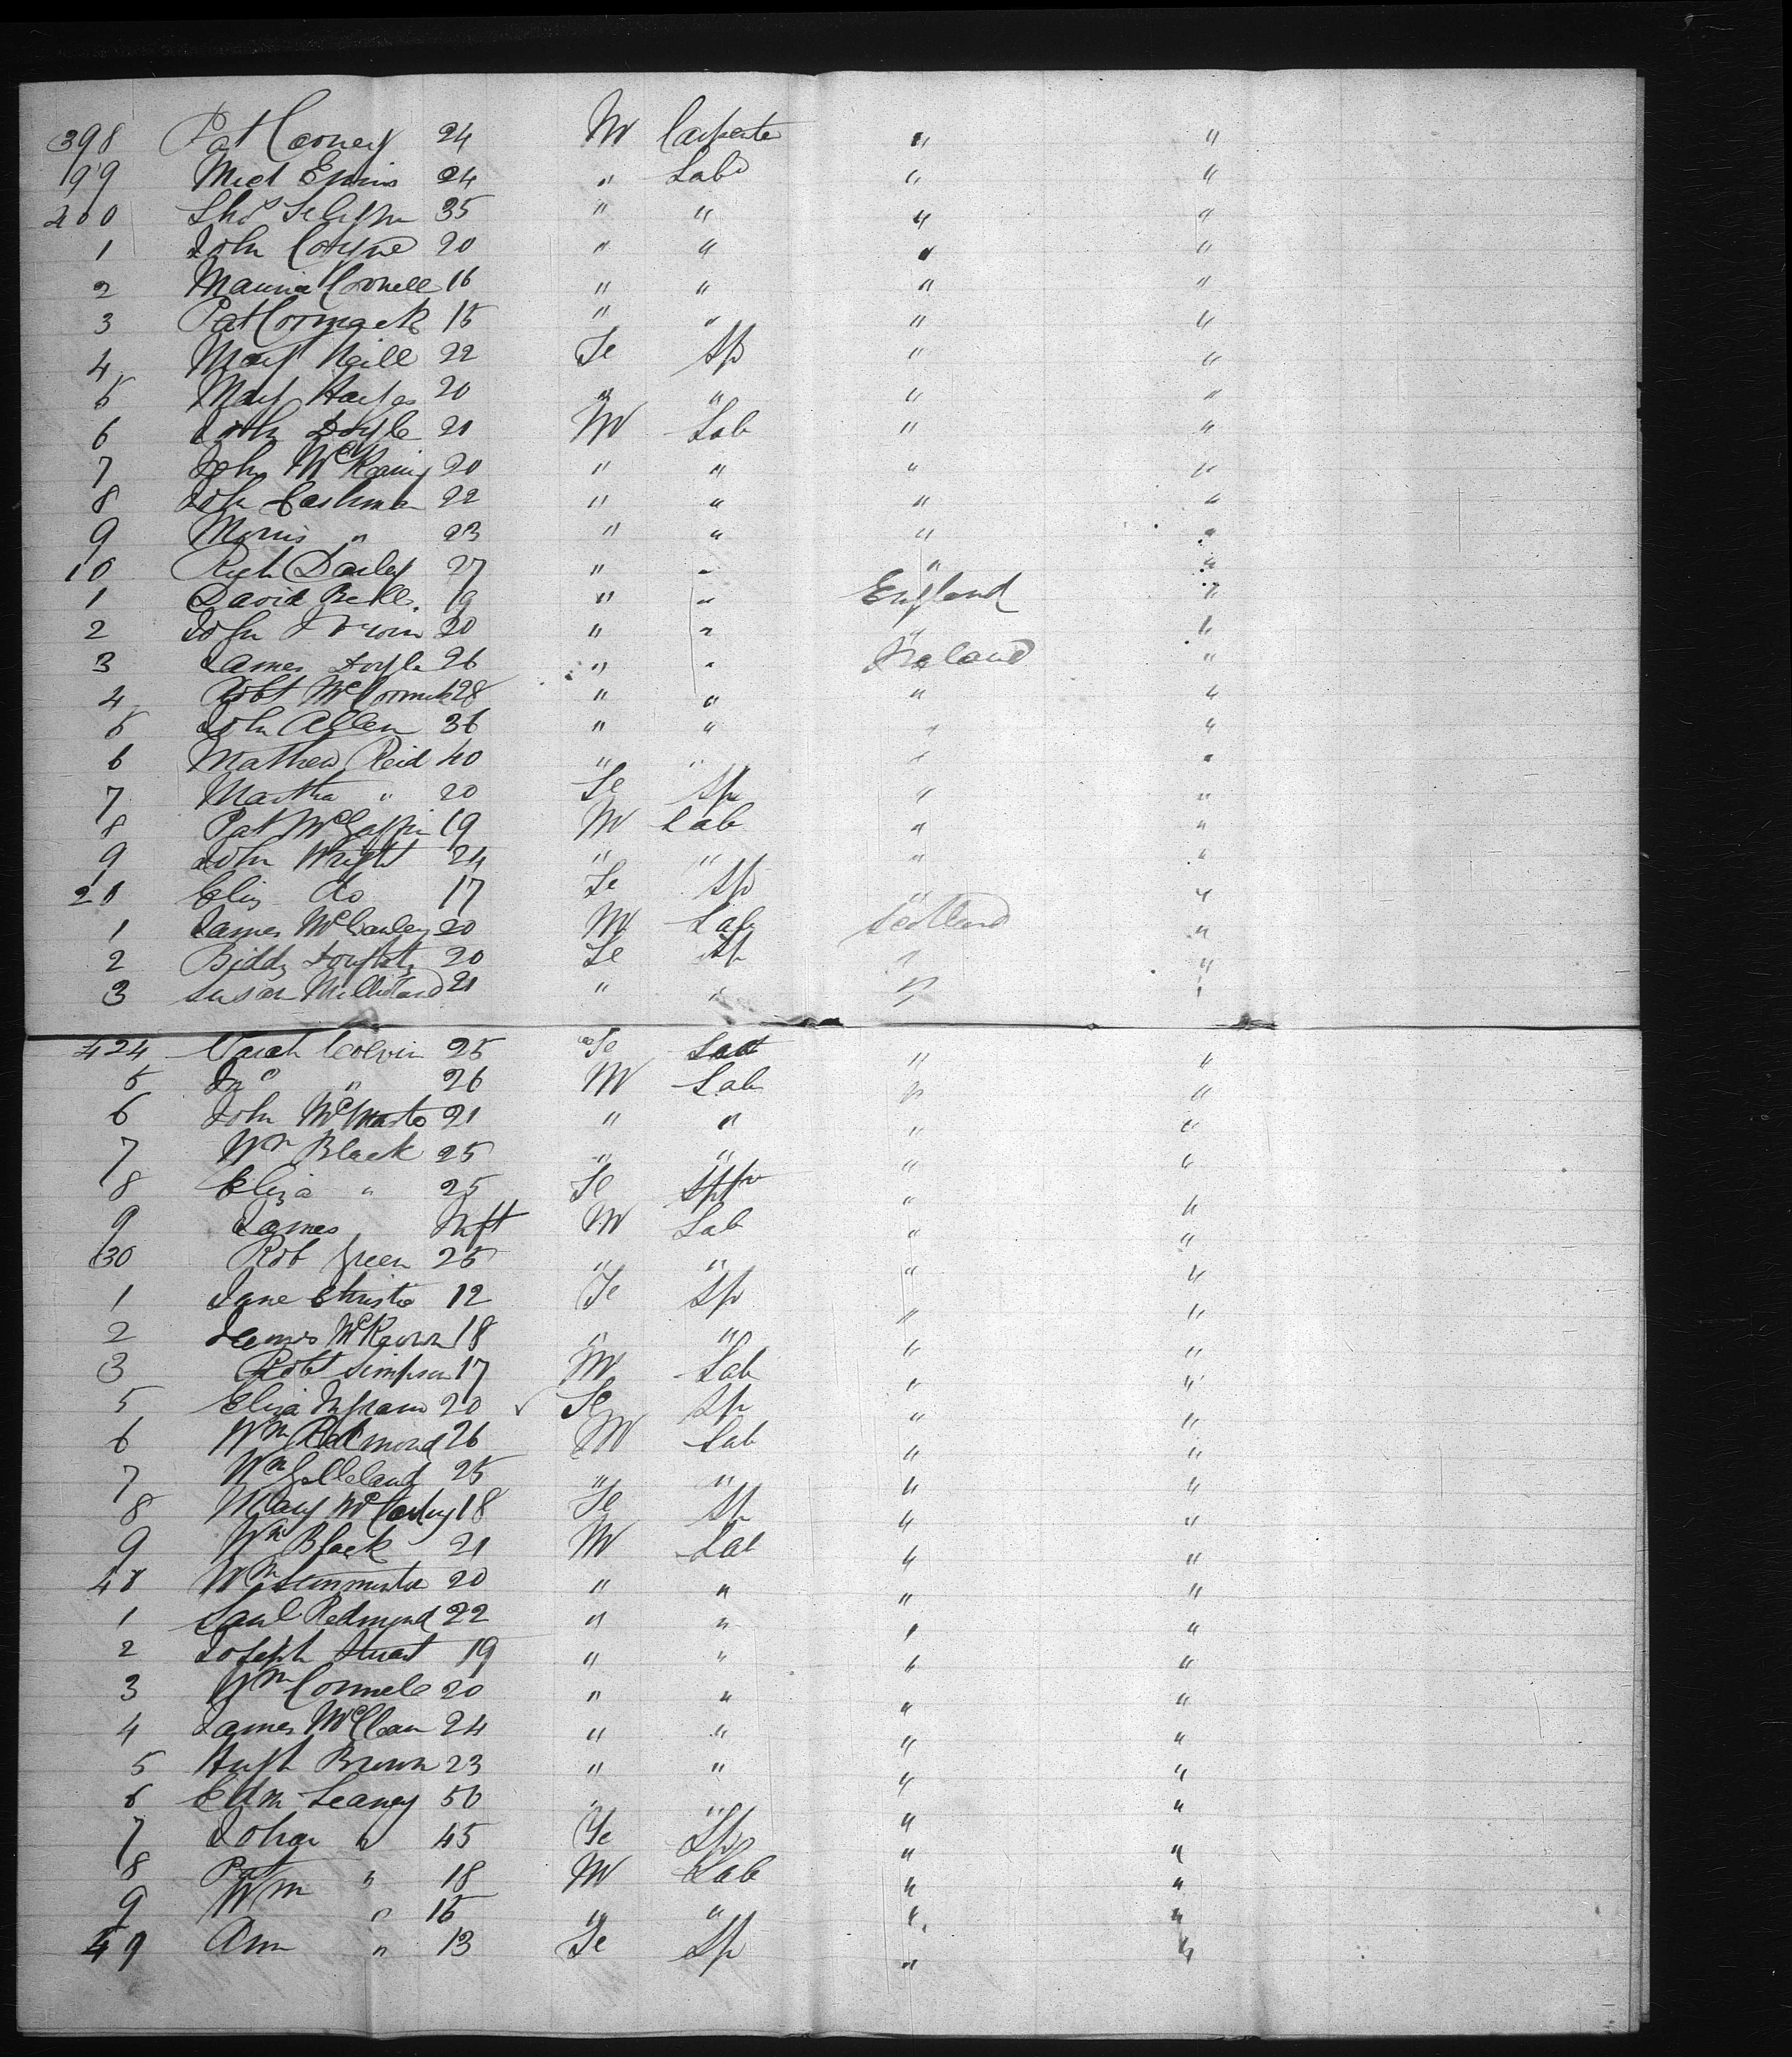 398 Pat Cooney 24 M Carpente " "
99 Mich Ennis 24 " Labr " "
400 Thos 35 " " " "
1 John Coyne 20 " " " "
2 Connell 16 " " " "
3 Pat Cormack 15 " " " "
4 Mary Neill 22 Fe Sp " "
5 Mary Hayes 20 " " " "
6 John Doyle 21 M Lab " "
7 John 20 " " " "
8 Joh Cashman 22 " " " "
9 Morris " 23 " " " "
10 Rich Darley 27 " " " "
1 David Bell 19 " " England "
2 John 20 " " " "
3 James Doyle 26 " " Ireland "
4 Robt McCormick 28 " " " "
5 John Allen 36 " " " "
6 Mathew Reid 40 " " " "
7 Martha " 20 Fe Sp " "
8 Pat McGaffin 19 M Lab " "
9 John Wright 24 " " " "
20 Eliz Do 17 Fe Sp " "
1 James McCauley 20 M Lab Scotland "
2 Biddy 20 Fe Sp " "
3 Susan 21 " " " "
424 Sarah Colvin 25 Fe " "
5 Jno " 26 M Lab " "
6 John McMaste 21 " " " "
7 Wm Black 25 " " " "
8 Eliza " 25 Fe Sp " "
9 James Inft M Lab " "
30 Rob Green 25 " " " "
1 Jane Christie 12 Fe Sp " "
2 McKeown 18 " " " "
3 Robt Simpson 17 M Lab " "
5 Eliza Ingram 20 ✓ Fe Sp " "
6 Wm Redmond 26 M Lab " "
7 Wm Gelleland 25 " " " "
8 Mary 18 Fe Sp " "
9 Wm Black 21 M Lab " "
40 Wm 20 " " " "
1 Saml Redmond 22 " " " "
2 Joseph Stuart 19 " " " "
3 Wm Connele 20 " " " "
4 James McClean 24 " " " "
5 Hugh Brown 23 " " " "
6 Edm Leaney 50 " " " "
7 Johan " 45 Fe Sp " "
8 Pat " 18 M Lab " "
9 Wm " 15 " " " "
49 Ann " 13 Fe Sp " "